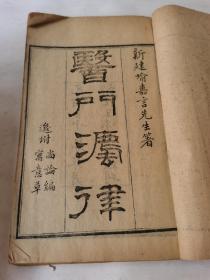 新建喻嘉言先生著
醫門灋律
尚論編
逸附
寓意草